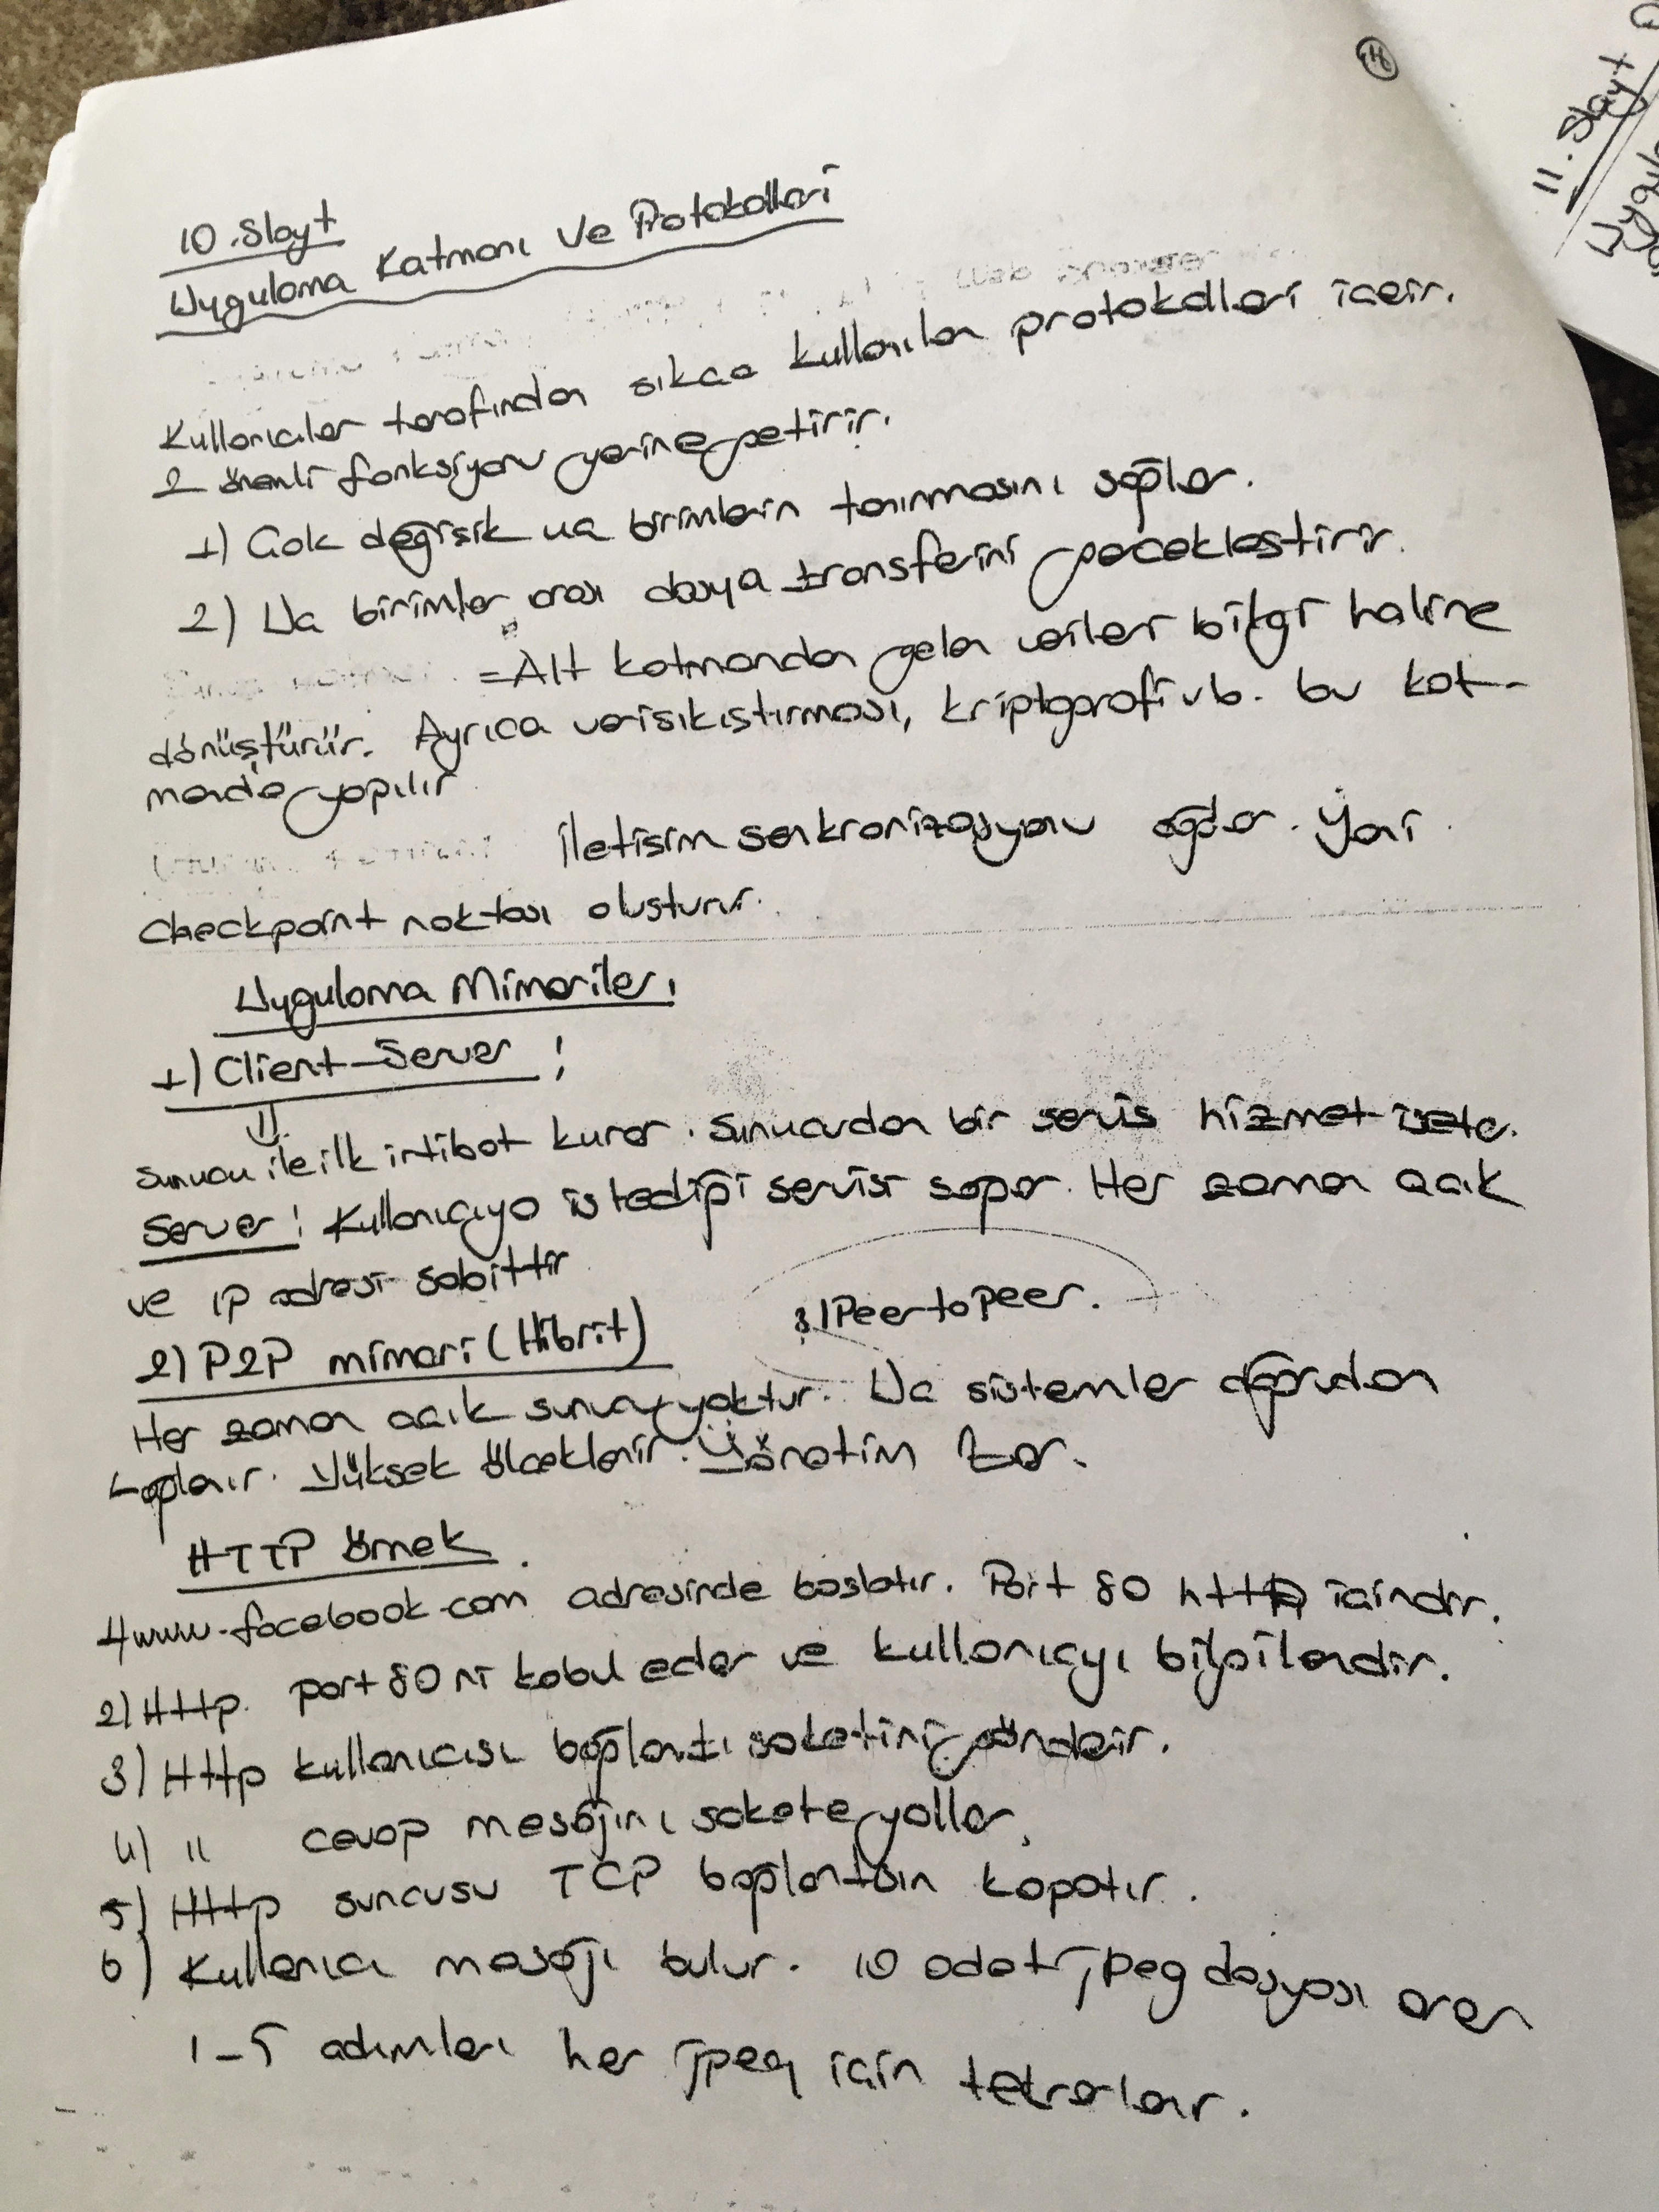 14
10.Slayt
Uygulama Katmanı Ve Protokolleri
Kullanıcılar tarafından sıkca kullanılan protokolleri icerir.
2 önemli fonksiyonu yerine getirir.
1) Cok değişik uc birimlerin tanınmasını sağlar.
2) Uc birimler arası dosya transferini gerceklestirir.
=Alt katmandan gelen veriler bilgi haline
dönüştürür. Ayrıca veri sıkıstırması, kriptografi vb. bu kat-
manda yapılır
İletisim senkronizasyonu sağlar. Yani
Checkpoint noktası olusturur.
Uygulama Mimarileri
1) Client-Server :
Sunucu ile ilk irtibat kurar. Sunucudan bir servis hizmet ister.
Server: Kullanıcıya istediği servisi sağlar. Her zaman acık
ve ıp adresi sabittir
2) P2P mimari (Hibrit) 3) Peer to Peer.
Her zaman acık sunucu yoktur. Uc sistemler doğrudan
bağlanır. Yüksek ölceklenir. Yönetim Zor.
HTTP örnek
1) www.facebook.com adresinde baslatır. Port 80 http icindir.
2) Http port 80 ni kabul eder ve kullanıcıyı bilgilendirir.
3) Http kullanıcısı bağlantı soketini gönderir.
4) " cevap mesajını sokete yollar.
5) Http suncusu TCP bağlantısın kapatır.
6) Kullanıcı mesajı bulur. 10 adet jpeg dosyası arar
1-5 adımları her jpeg icin tekrarlanır.
11.Slayt